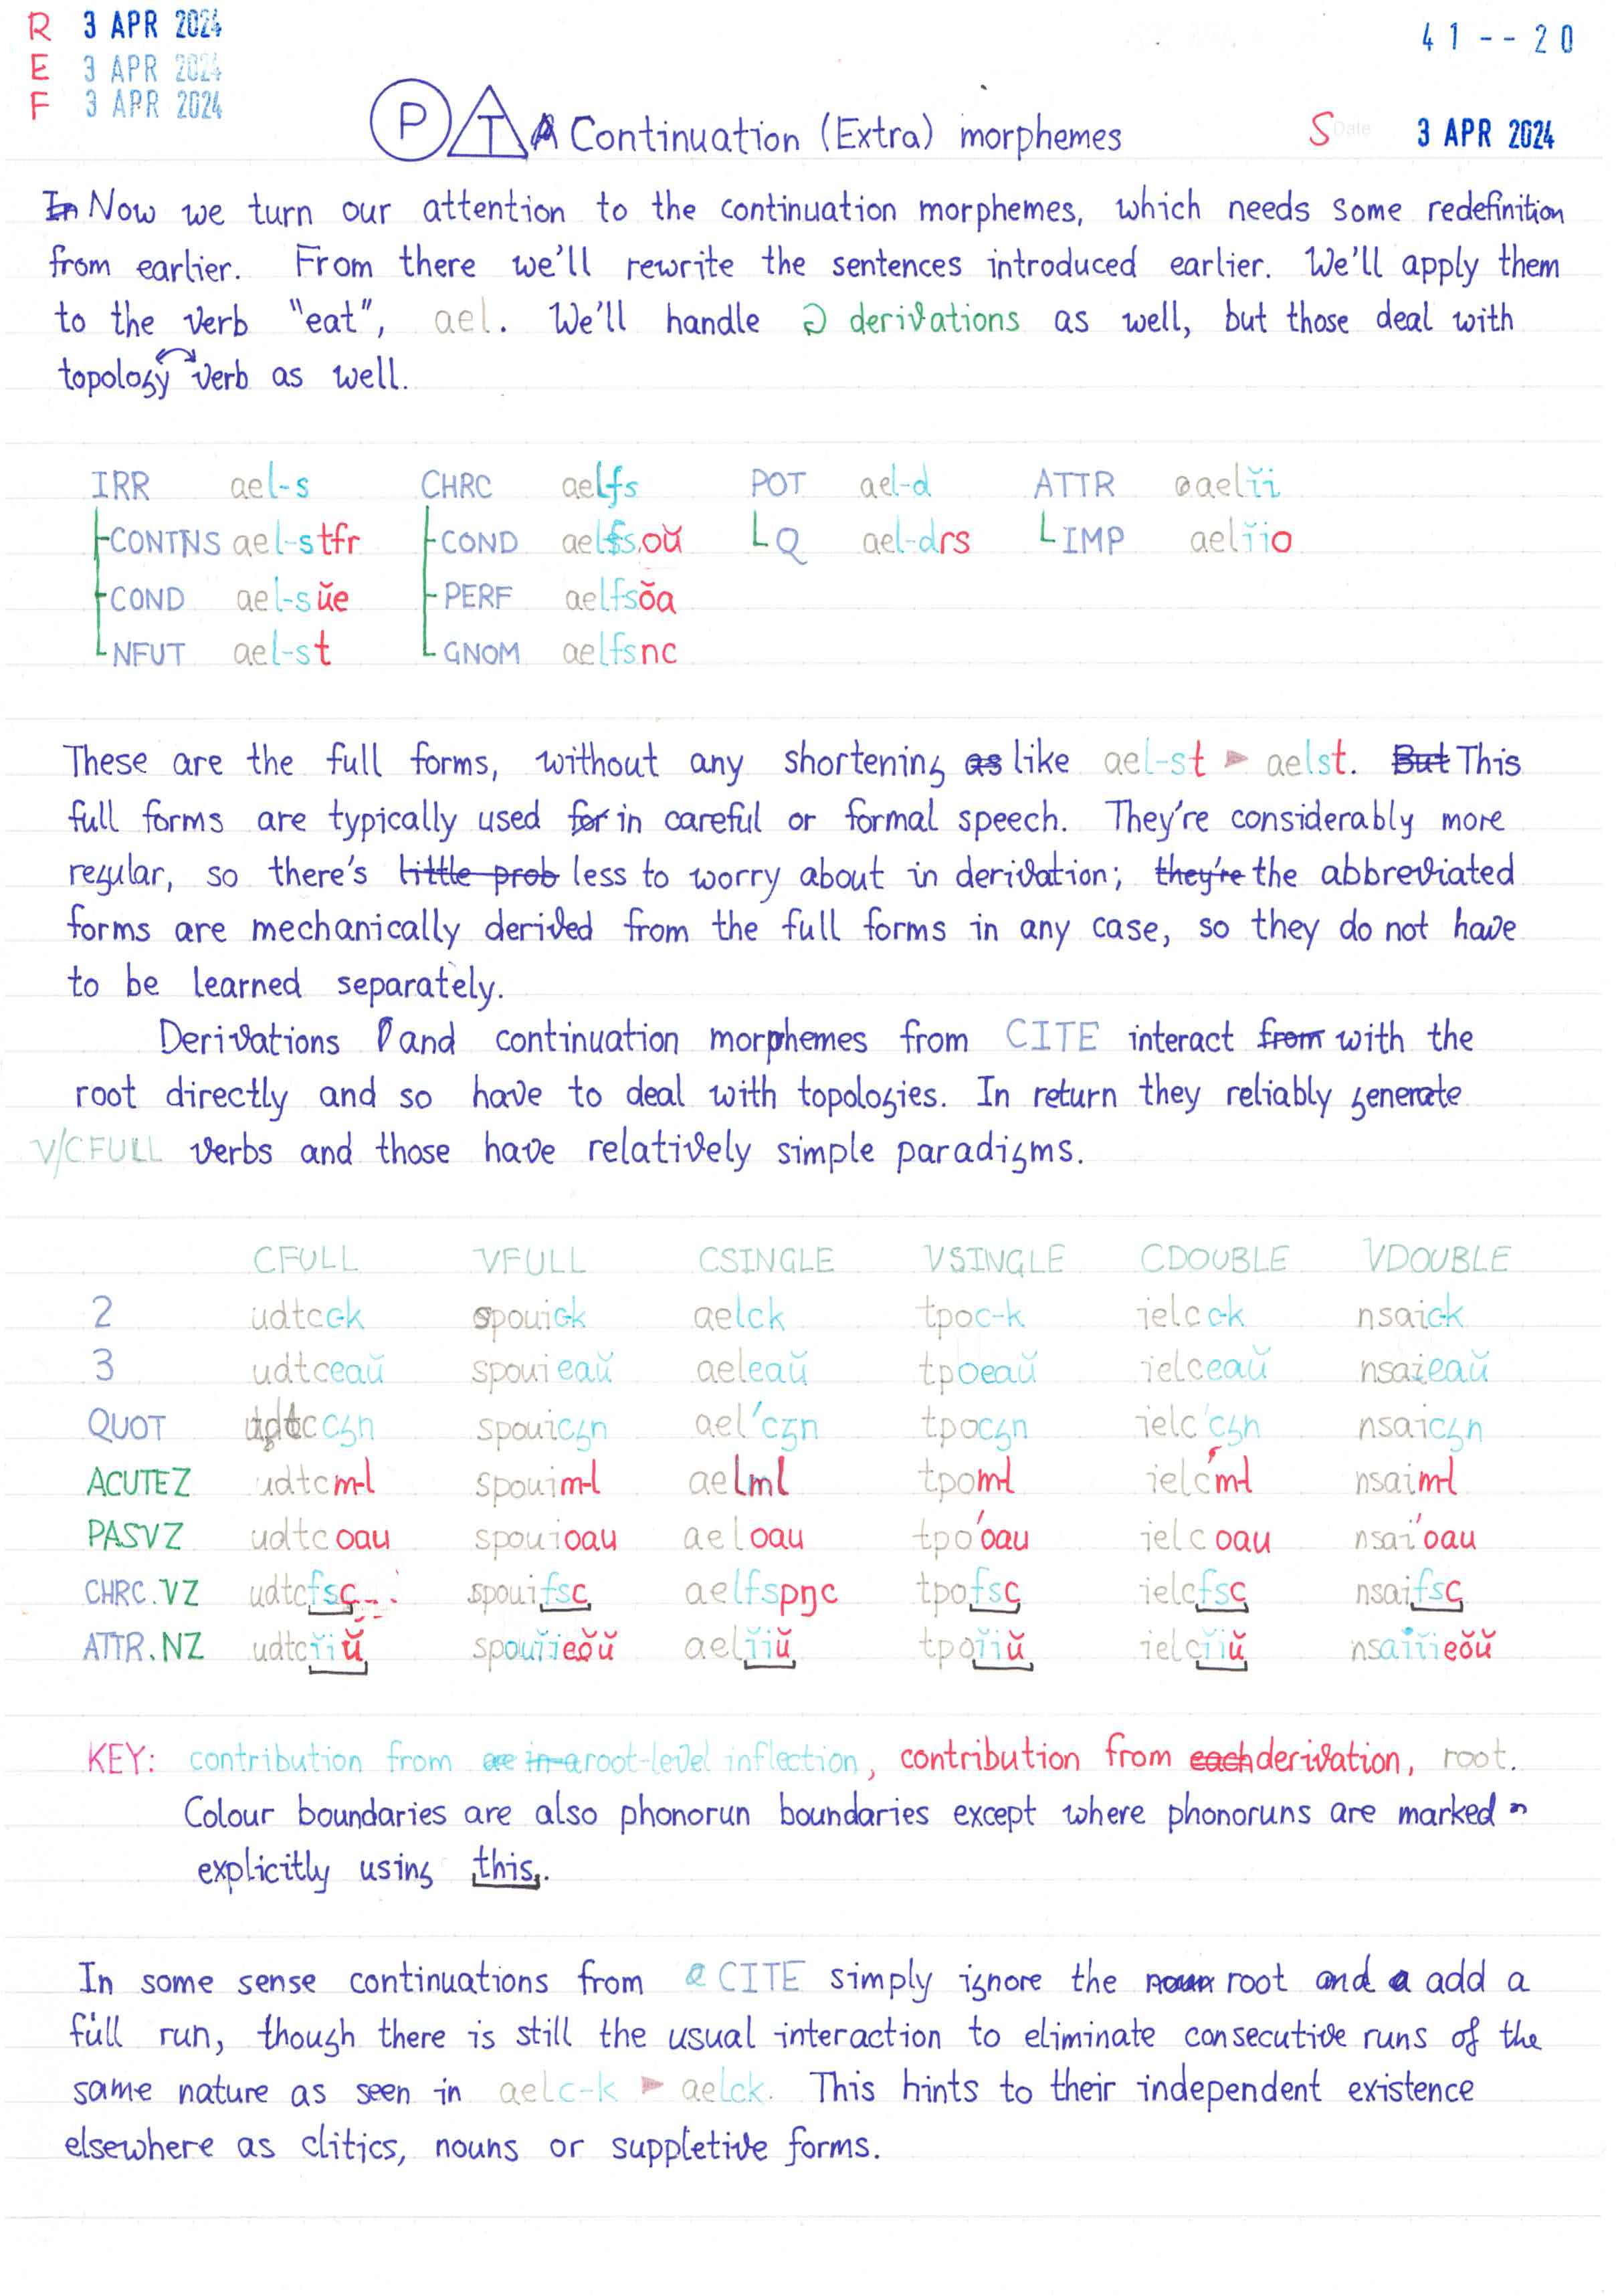 R 3 APR 2024
E 3 APR 2024
F 3 APR 2024
41--20
P T A Continuation (Extra) morphemes
S Date 3 APR 2024
In Now we turn our attention to the continuation morphemes, which needs some redefinition
from earlier. From there we'll rewrite the sentences introduced earlier. We'll apply them
to the verb "eat", ael. We'll handle derivations as well, but those deal with
topology verb as well.
IRR ael-s CHRC aelfs POT ael-d ATTR aelĭi
CONTNS ael-stfr COND aelfsoŭ Q ael-drs IMP aelĭio
COND ael-sŭe PERF aelfsŏa
NFUT ael-st GNOM aelfsnc
These are the full forms, without any shortening as like ael-st ▸ aelst. But This
full forms are typically used for in careful or formal speech. They're considerably more
regular, so there's little prob less to worry about in derivation; they're the abbreviated
forms are mechanically derived from the full forms in any case, so they do not have
to be learned separately.
Derivations and continuation morphemes from CITE interact from with the
root directly and so have to deal with topologies. In return they reliably generate
V/CFULL verbs and those have relatively simple paradigms.
CFULL VFULL CSINGLE VSINGLE CDOUBLE VDOUBLE
2 udtcc-k spouic-k aelck tpoc-k ielcc-k nsaic-k
3 udtceaŭ spouieaŭ aeleaŭ tpoeaŭ ielceaŭ nsaieaŭ
QUOT udtccgn spouicgn ael'cgn tpocgn ielc'cgn nsaicgn
ACUTEZ udtcm-l spouim-l aelml tpom-l ielc'm-l nsaim-l
PASVZ udtcoau spouioau aeloau tpo'oau ielcoau nsai'oau
CHRC.VZ udtcfsç spouifsç aelfspŋc tpofsç ielcfsç nsaifsç
ATTR.NZ udtcĭiŭ spouĭieŏŭ aelĭiŭ tpoĭiŭ ielcĭiŭ nsaĭĭieŏŭ
KEY: contribution from are in a root-level inflection, contribution from each derivation, root.
Colour boundaries are also phonorun boundaries except where phonoruns are marked
explicitly using this.
In some sense continuations from CITE simply ignore the noun root and a add a
full run, though there is still the usual interaction to eliminate consecutive runs of the
same nature as seen in aelc-k ▸ aelck. This hints to their independent existence
elsewhere as clitics, nouns or suppletive forms.